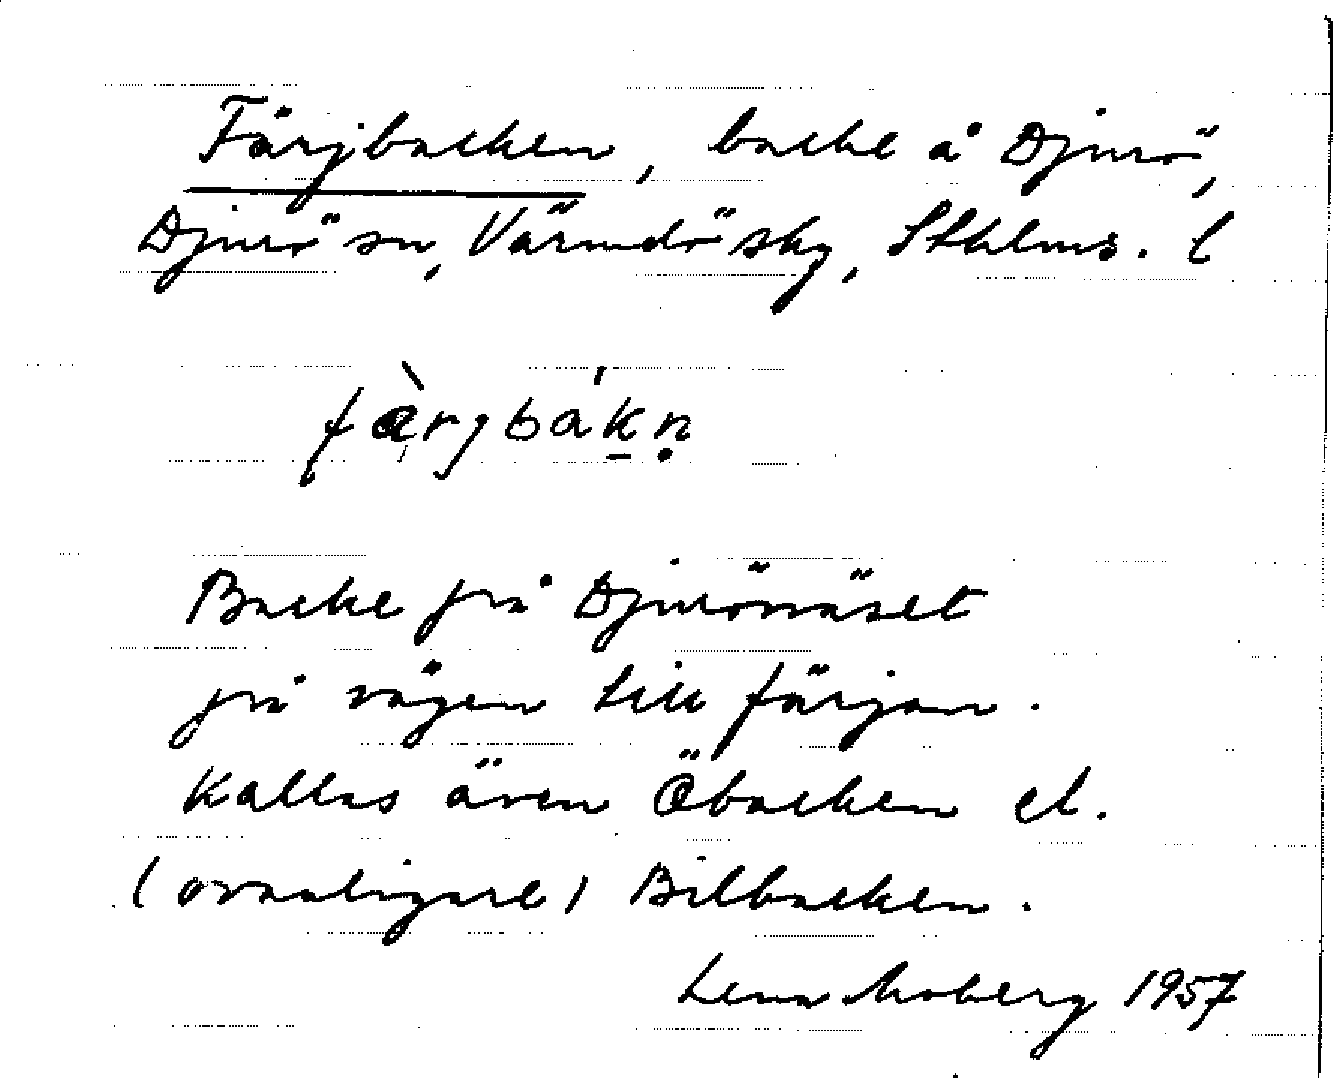 Färjbacken, backe å Djurö,
Djurö sn, Värmdö skg, Sthlms. l
færjbákn̥
Backe på Djurönäset
på vägen till färjan.
Kallas även Öbacken el.
(ovanligare) Bilbacken.
Lena Moberg 1957